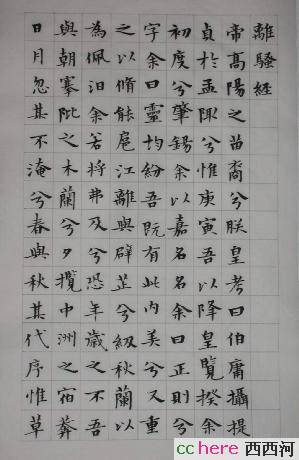 離騷經
帝高陽之苗裔兮朕皇考曰伯庸攝提
貞於孟陬兮惟庚寅吾以降皇覽揆余
初度兮肇錫余以嘉名名余曰正則兮
字余曰靈均紛吾既有此內美兮又重
之以脩能扈江離與辟芷兮紉秋蘭以
為佩汨余若將弗及兮恐年歲之不吾
與朝搴阰之木蘭兮夕攬中洲之宿莽
日月忽其不淹兮春與秋其代序惟草
cchere 西西河